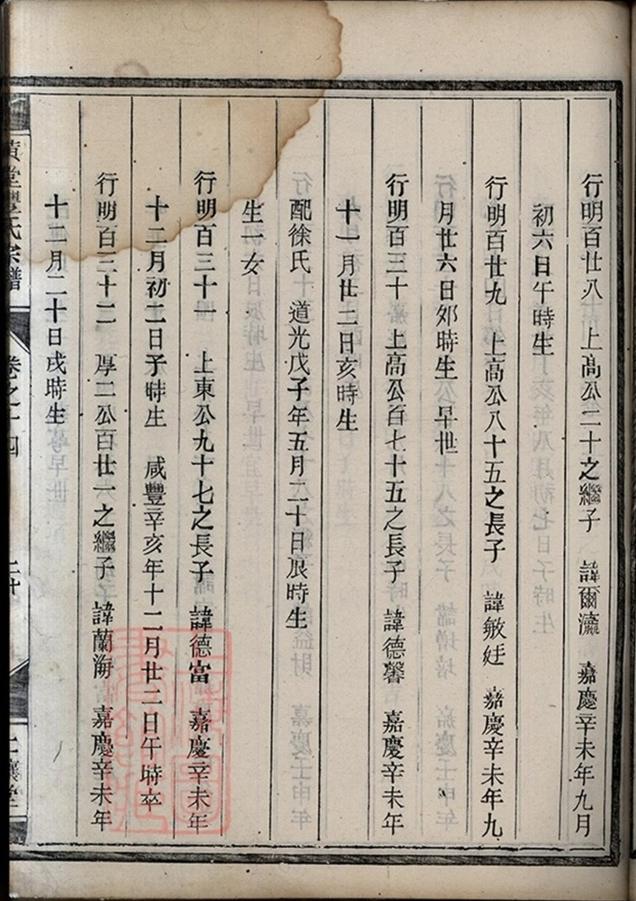 行明百廿八 上高公二十之繼子 諱爾瀛 嘉慶辛未年九月
初六日午時生
行明百廿九 上高公八十五之長子 諱敏廷 嘉慶辛未年九
月廿六日卯時生 早世
行明百三十 上高公百七十五之長子 諱德馨 嘉慶辛未年
十一月廿二日亥時生
配徐氏 道光戊子年五月二十日辰時生
生一女
行明百三十一 上東公九十七之長子 諱德富 嘉慶辛未年
十二月初二日子時生 咸豐辛亥年十二月廿二日午時卒
行明百三十二 厚二公百廿一之繼子 諱蘭海 嘉慶辛未年
十二月二十日戌時生
黃堂 氏宗譜 卷之十四 二十